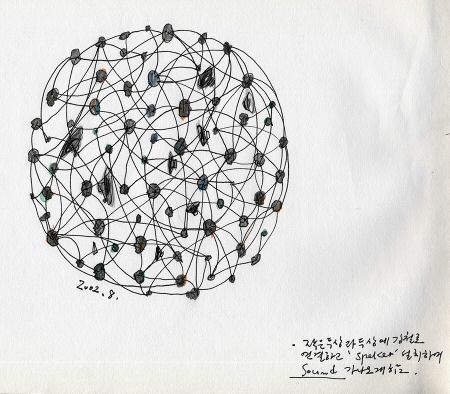 2002. 8.
· 작은 두상과 두상에 강철로
연결하고 'speaker' 설치하여
Sound 가 나오게 하고.